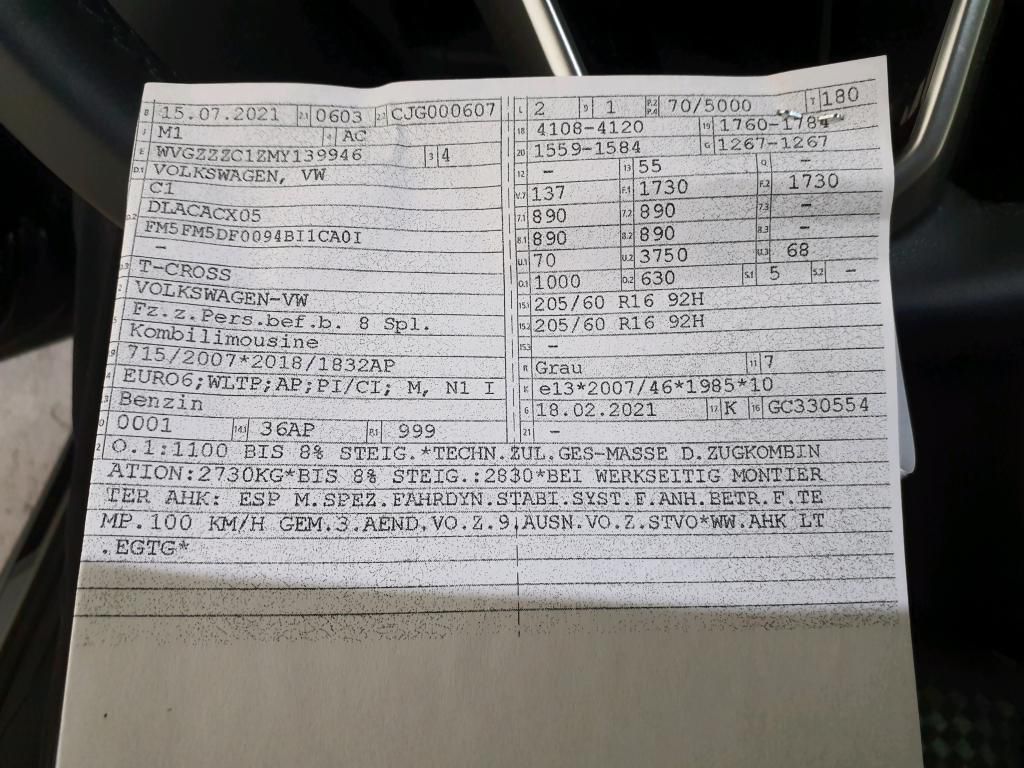 B 15.07.2021 2.1 0603 2.2 CJG000607
J M1 4 AC
E WVGZZZC1ZMY139946 3 4
D.1 VOLKSWAGEN, VW
C1
D.2 DLACACX05
FM5FM5DF0094BI1CA0I
–
D.3 T-CROSS
2 VOLKSWAGEN-VW
5 Fz.z.Pers.bef.b. 8 Spl.
Kombilimousine
V.9 715/2007*2018/1832AP
14 EURO6;WLTP;AP;PI/CI; M, N1 I
P.3 Benzin
10 0001 14.1 36AP P.1 999
L 2 9 1 P.2 P.4 70/5000 T 180
18 4108-4120 19 1760-1784
20 1559-1584 G 1267-1267
12 – 13 55 Q –
V.7 137 F.1 1730 F.2 1730
7.1 890 7.2 890 7.3 –
8.1 890 8.2 890 8.3 –
U.1 70 U.2 3750 U.3 68
O.1 1000 O.2 630 S.1 5 S.2 –
15.1 205/60 R16 92H
15.2 205/60 R16 92H
15.3 –
R Grau 11 7
K e13*2007/46*1985*10
6 18.02.2021 17 K 16 GC330554
21 –
22 O.1:1100 BIS 8% STEIG.*TECHN.ZUL.GES-MASSE D.ZUGKOMBIN
ATION:2730KG*BIS 8% STEIG.:2830*BEI WERKSEITIG MONTIER
TER AHK: ESP M.SPEZ.FAHRDYN.STABI.SYST.F.ANH.BETR.F.TE
MP.100 KM/H GEM.3.AEND.VO.Z.9.AUSN.VO.Z.STVO*WW.AHK LT
.EGTG*